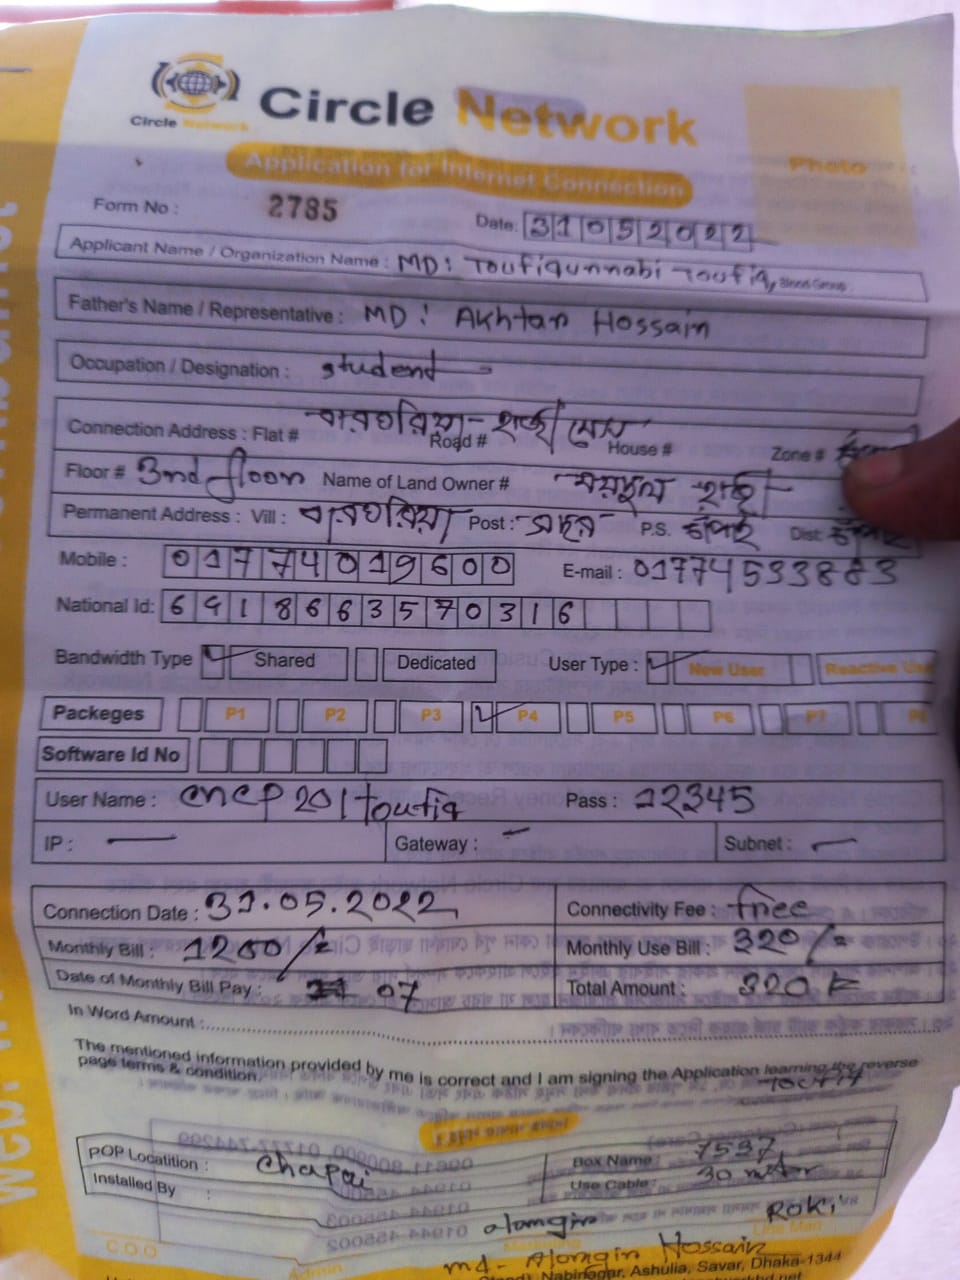 Circle Network
Circle Network
Photo
Application for Internet Connection
Form No : 2785
Date: 31052022
Applicant Name / Organization Name : MD: Toufiqunnabi Toufiq, Blood Group
Father's Name / Representative : MD: Akhtar Hossain
Occupation / Designation : student
Connection Address : Flat # Road # House # Zone #
Floor # 3nd floor Name of Land Owner #
Permanent Address : Vill : Post : সদর P.S. চাঁপাই Dist: চাঁপাই
Mobile : 01774019600 E-mail : 01774533883
National Id: 6918663570316
Bandwidth Type Shared Dedicated User Type : New User Reactive
Packeges P1 P2 P3 P4 P5 P6 P7
Software Id No
User Name : cncp201toufiq Pass : 12345
IP : — Gateway : — Subnet : —
Connection Date : 31.05.2022 Connectivity Fee : free
Monthly Bill : 1200/= Monthly Use Bill : 320/=
Date of Monthly Bill Pay : 07 Total Amount : 320
In Word Amount :
The mentioned information provided by me is correct and I am signing the Application learning the reverse
page terms & condition.
Toufiq
POP Locatition : Chapai Box Name : 7537
Installed By : Use Cable : 30 meter
alamgir Roki
C.O.O Admin
md- Alamgir Hossain
Nabinagar, Ashulia, Savar, Dhaka-1344